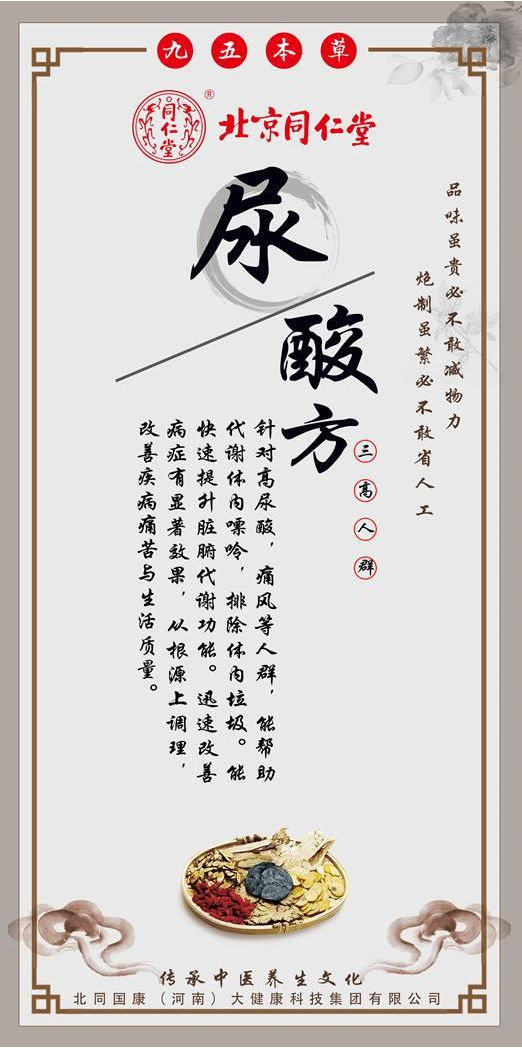 九五本草
同仁堂
®
北京同仁堂
尿
酸方
三高人群
品味虽贵必不敢减物力
炮制虽繁必不敢省人工
针对高尿酸，痛风等人群，能帮助
代谢体内嘌呤，排除体内垃圾。能
快速提升脏腑代谢功能。迅速改善
病症有显著效果，从根源上调理，
改善疾病痛苦与生活质量。
传承中医养生文化
北同国康（河南）大健康科技集团有限公司